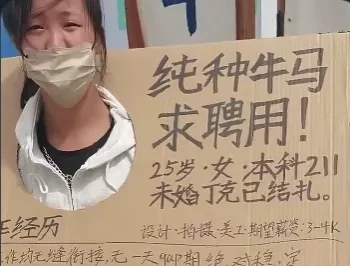 纯种牛马
求聘用！
25岁·女·本科211
未婚丁克已结扎。
经历
设计·拍摄·美工·期望薪资:3-4K
作均无缝衔接,无一天gap期 绝对稳定